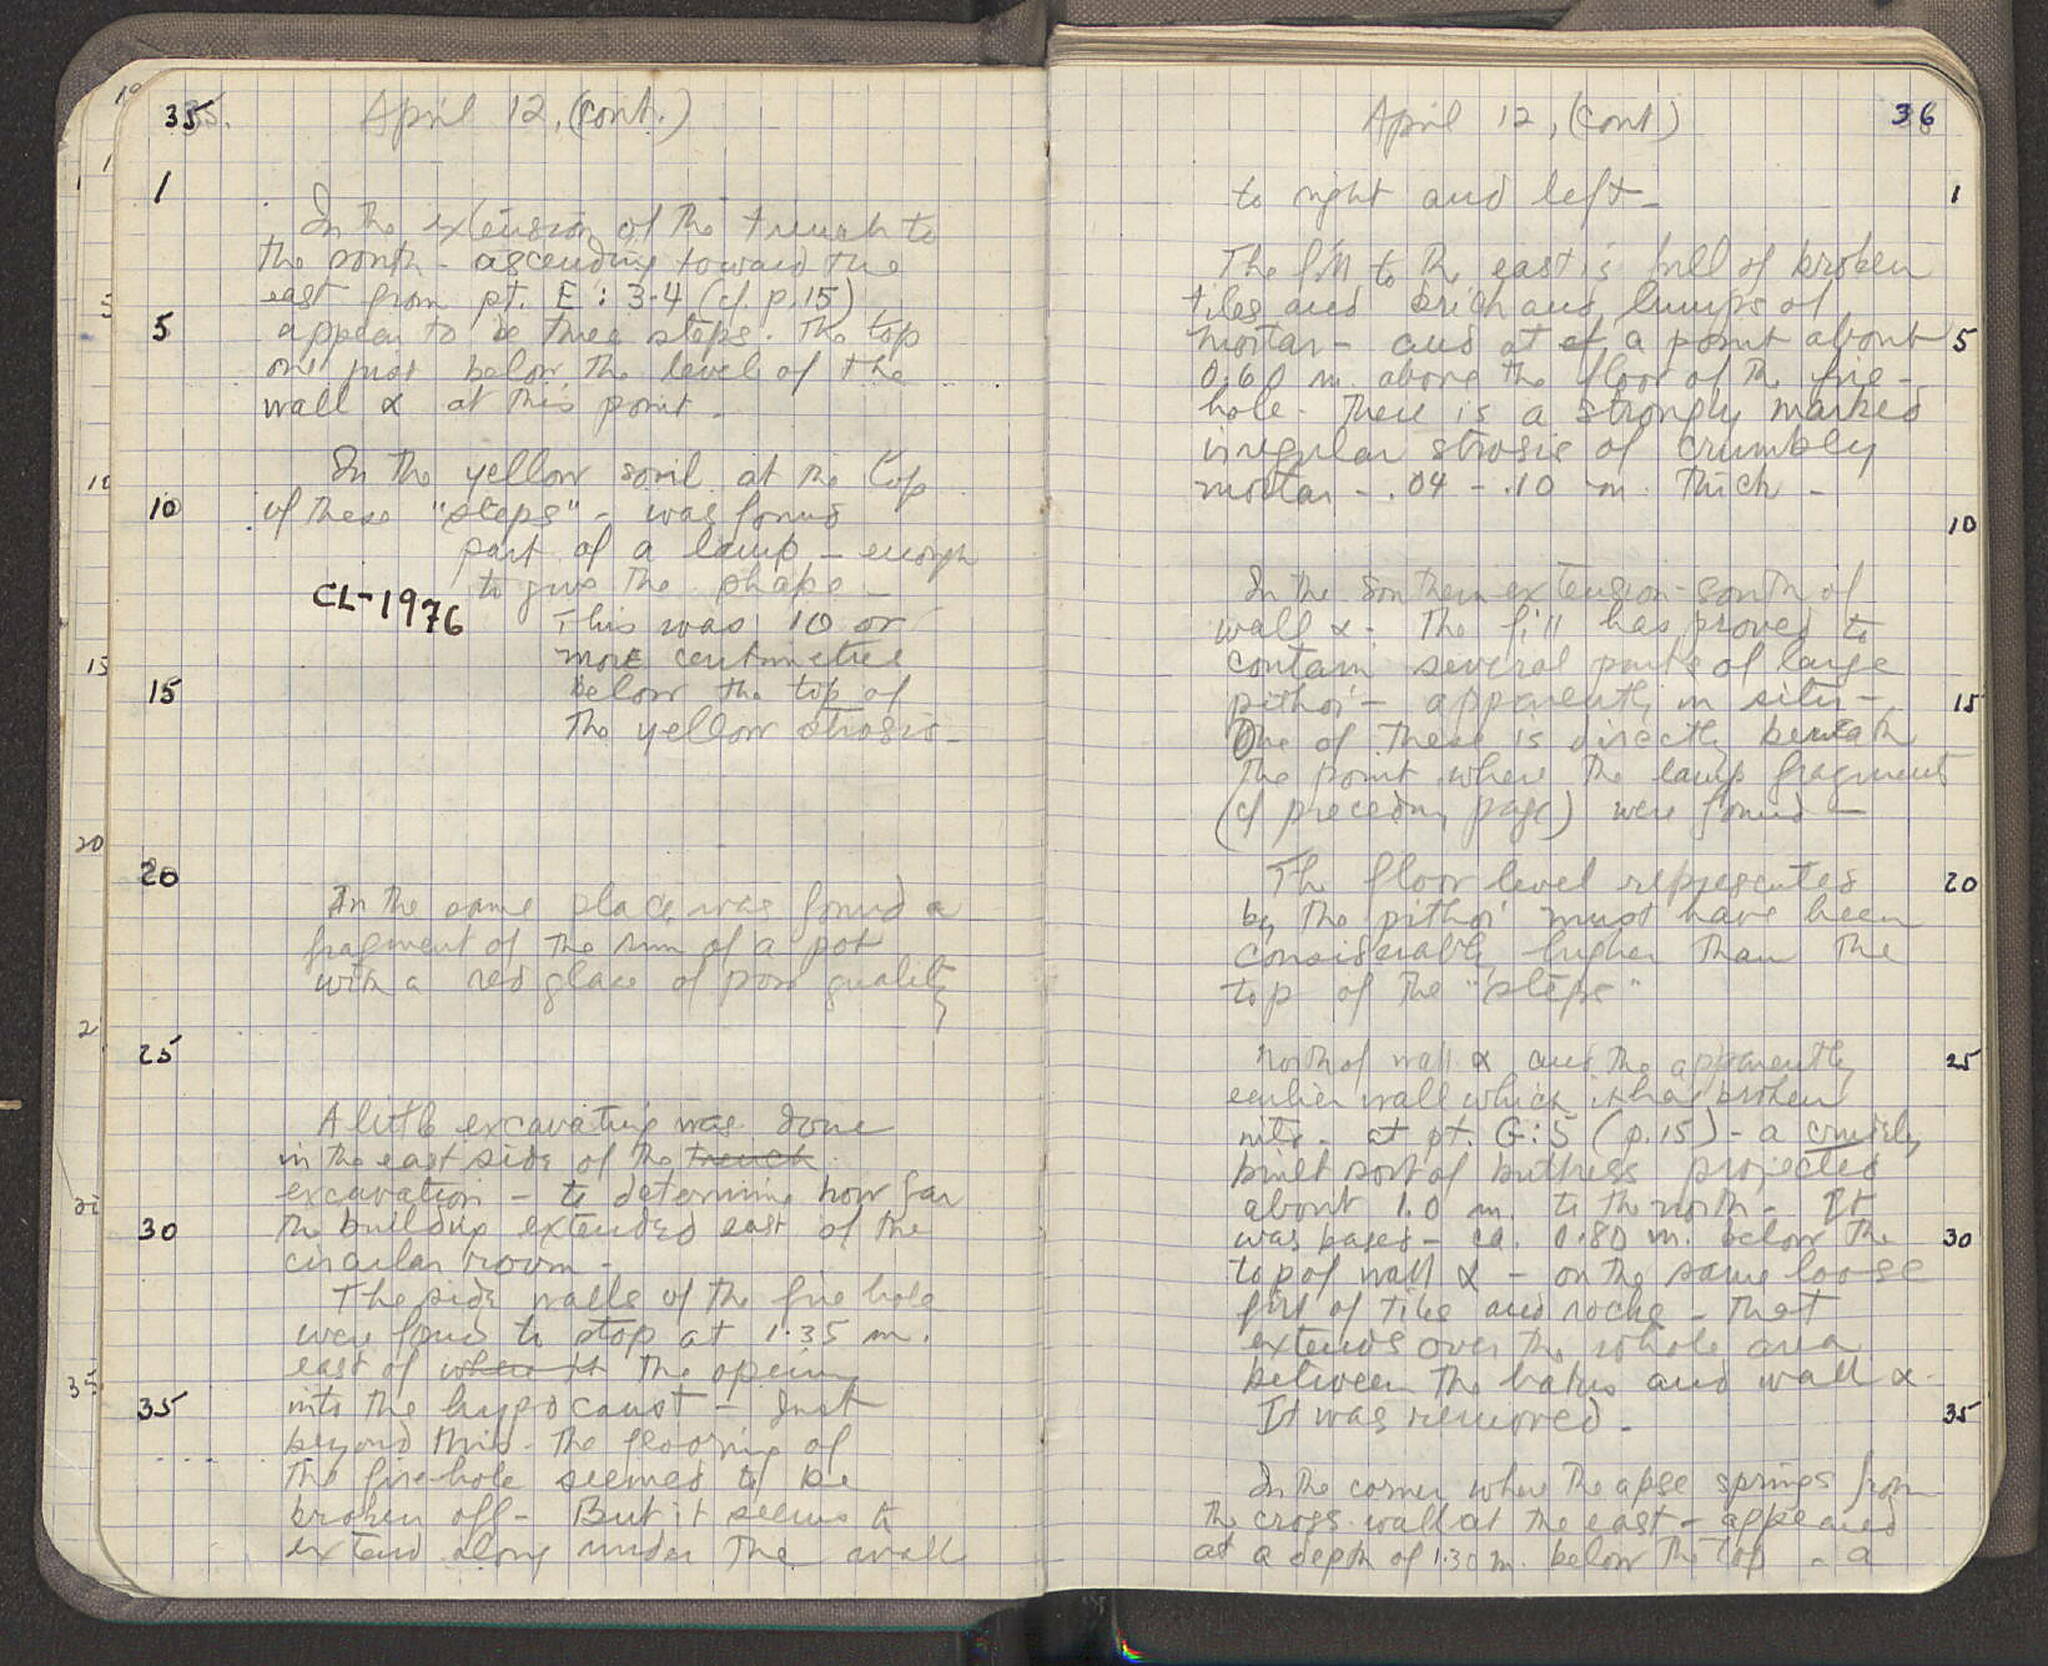 35.
April 12, (cont.)
1
In the extension of the trench to
the south - ascending toward the
east from pt. E : 3-4 (cf. p. 15)
5
appear to be three steps. The top
one just below the level of the
wall α at this point -
In the yellow soil at the top
10
of these "steps" - was found
part of a lamp - enough
to give the shape -
CL-1976
This was 10 or
more centimetres
15
below the top of
the yellow strosis -
20
In the same place was found a
fragment of the rim of a pot
with a red glaze of poor quality
25
A little excavating was done
in the east side of the trench
excavation - to determine how far
30
the building extended east of the
circular room -
The side walls of the fire hole
were found to stop at 1.35 m.
east of where it the opening
35
into the hypocaust - Just
beyond this - the flooring of
the fire-hole seemed to be
broken off - But it seems to
extend along under the wall
April 12, (cont)
36
to right and left -
1
The fill to the east is full of broken
tiles and brick and lumps of
mortar - and at of a point about
5
0.60 m. above the floor of the fire-
hole - there is a strongly marked
irregular strosis of crumbly
mortar - .04 - .10 m. thick -
10
In the southern extension - south of
wall α - the fill has proved to
contain several parts of large
pithoi - apparently in situ -
15
One of these is directly beneath
the point where the lamp fragments
(cf preceding page) were found -
The floor level represented
20
by the pithoi must have been
considerably higher than the
top of the "steps"
North of wall α and the apparently
25
earlier wall which it has broken
into - at pt. G : 5 (p. 15) - a crudely
built sort of buttress projected
about 1.0 m. to the north - It
was based - ca. 0.80 m. below the
30
top of wall α - on the same loose
fill of tiles and rocks - that
extends over the whole area
between the baths and wall α -
It was removed -
35
In the corner where the apse springs from
the cross wall at the east - appeared
at a depth of 1.30 m. below the top - a